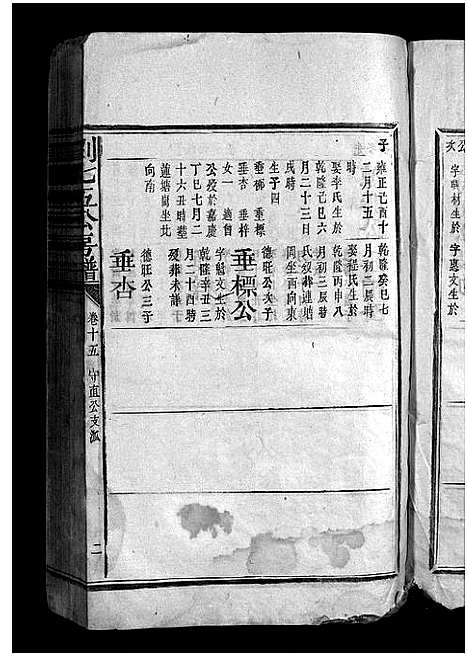 子
雍正己酉十
二月十五
時
娶李氏生於
乾隆己巳六
月二十三日
戌時
生子四
垂柳 垂標
垂杏 垂梓
女一 適自
公歿於嘉慶
丁巳七月二
十六丑時墓
蓮塘崗坐北
向南
乾隆癸巳七
月初二辰時
娶程氏生於
乾隆丙申八
月初三辰時
氏歿葬蓮塘
岡坐西向東
德旺公次子
垂標公
字魁文生於
乾隆辛丑三
月二十四時
歿葬未詳
德旺公三子
垂杏
劉七五公房譜
卷十五
守直公支派
二
字
材生於
字惠文生於